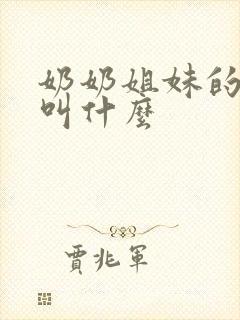 奶奶姐妹的
叫什麼
賈兆軍